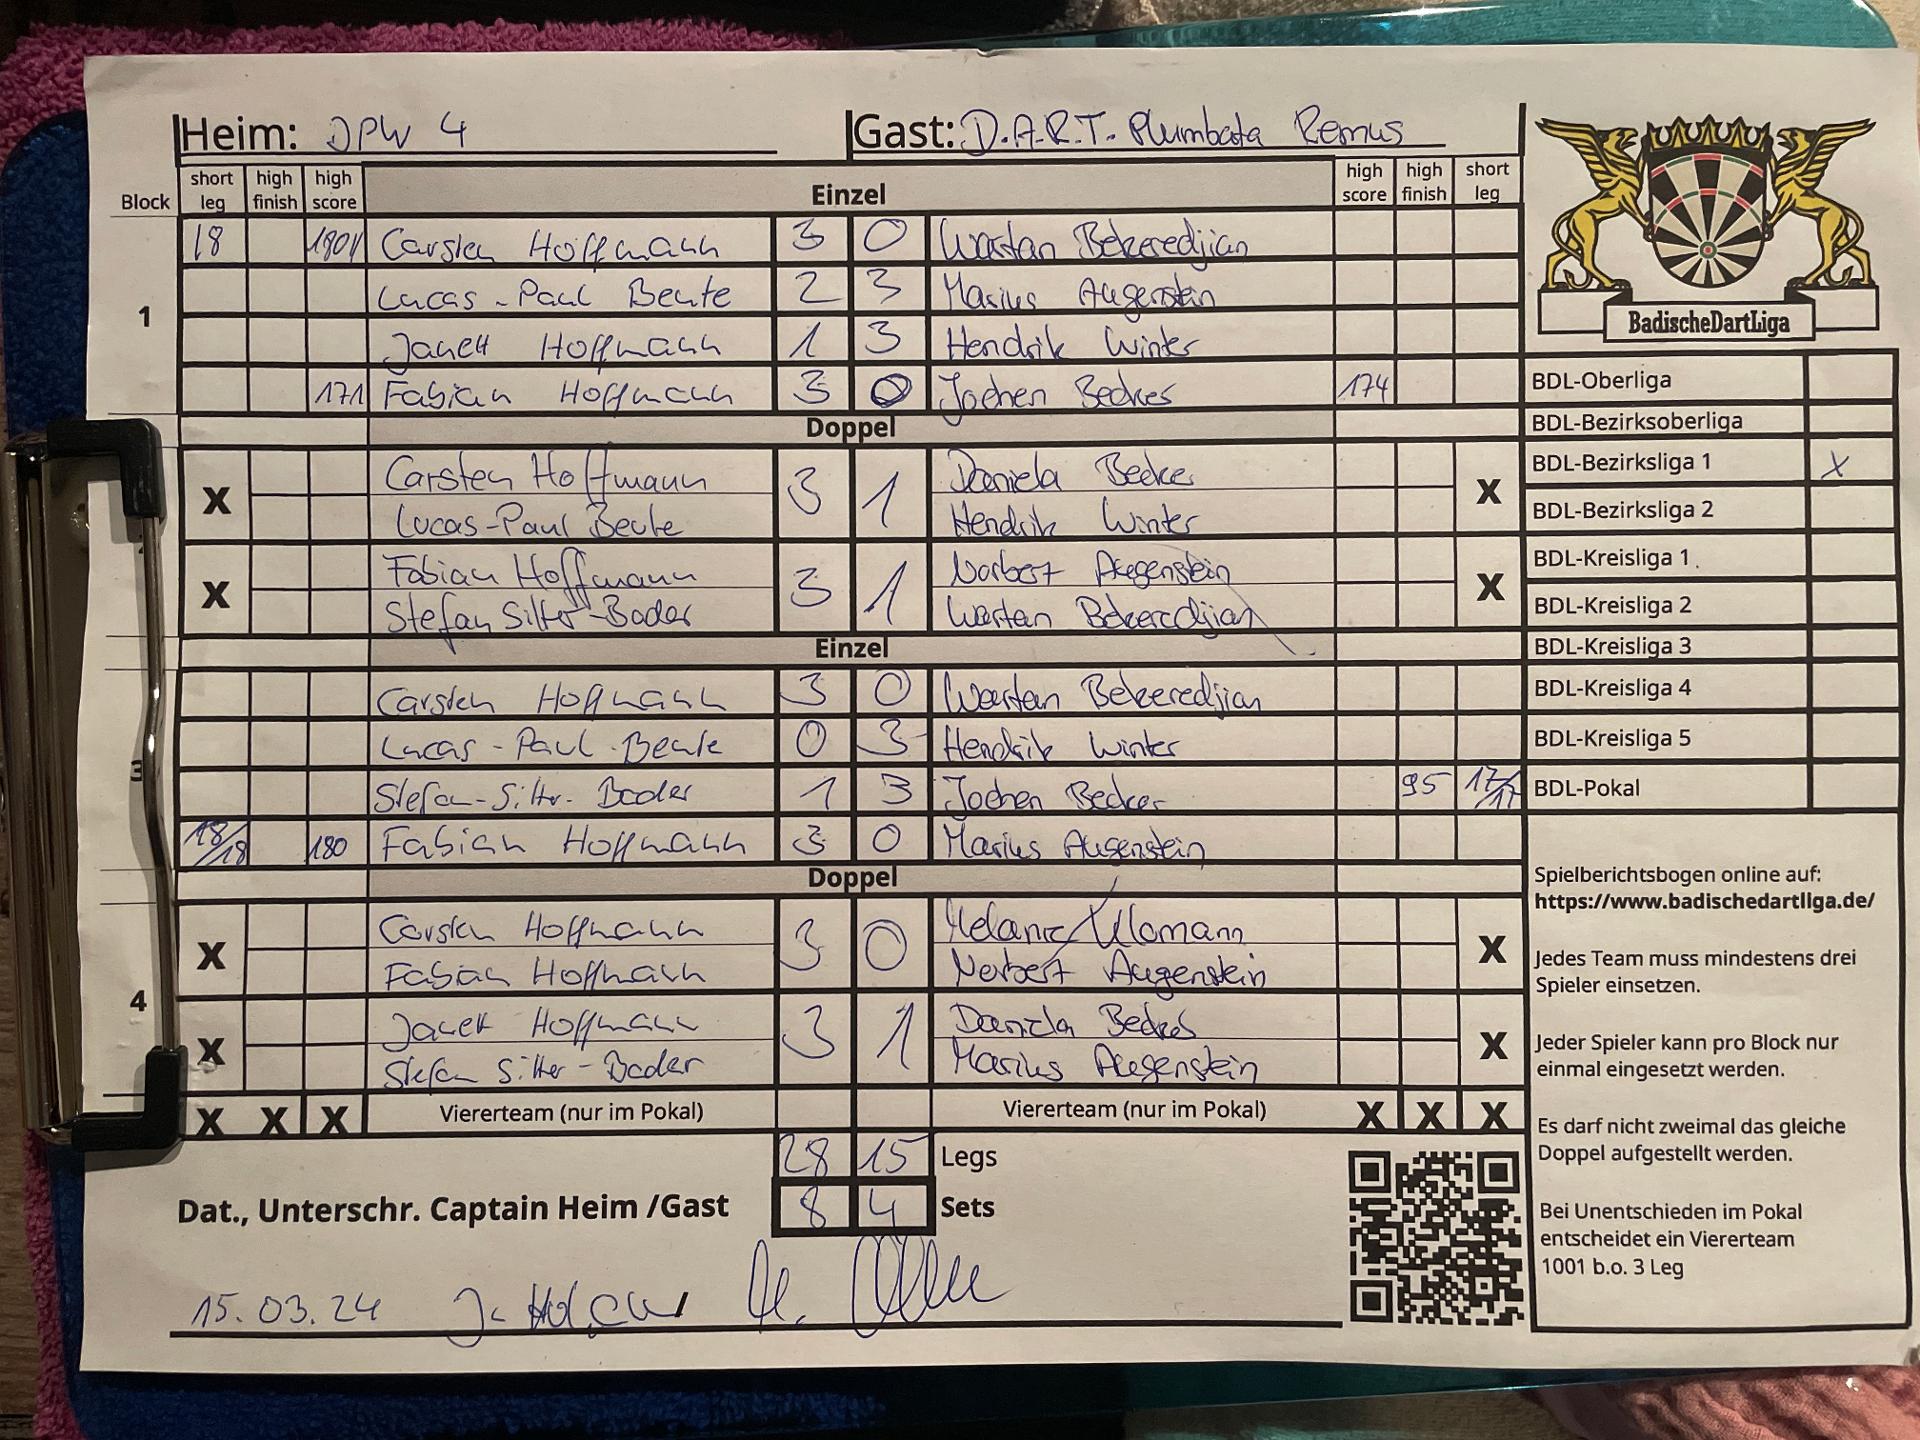 Heim: DPW 4 Gast: D.A.R.T. Plumbata Remus
Block short leg high finish high score Einzel high score high finish short leg
1
18 180 Carsten Hoffmann 3 0 Wartan Bekeredjian
Lucas-Paul Beute 2 3 Marius Augenstein
Janett Hoffmann 1 3 Hendrik Winter
171 Fabian Hoffmann 3 0 Jochen Becker 174
Doppel
X Carsten Hoffmann 3 1 Daniela Becker X
Lucas-Paul Beute Hendrik Winter
X Fabian Hoffmann 3 1 Norbert Augenstein X
Stefan Sitter-Bader Wartan Bekeredjian
Einzel
3
Carsten Hoffmann 3 0 Wartan Bekeredjian
Lucas-Paul Beute 0 3 Hendrik Winter
Stefan-Sitter-Bader 1 3 Jochen Becker 95 17/17
18/18 180 Fabian Hoffmann 3 0 Marius Augenstein
Doppel
4
X Carsten Hoffmann 3 0 Melanie Ullmann X
Fabian Hoffmann Norbert Augenstein
X Janett Hoffmann 3 1 Daniela Becker X
Stefan Sitter-Bader Marius Augenstein
X X X Viererteam (nur im Pokal) Viererteam (nur im Pokal) X X X
28 15 Legs
Dat., Unterschr. Captain Heim /Gast 8 4 Sets
15.03.24
BadischeDartLiga
BDL-Oberliga
BDL-Bezirksoberliga
BDL-Bezirksliga 1 X
BDL-Bezirksliga 2
BDL-Kreisliga 1
BDL-Kreisliga 2
BDL-Kreisliga 3
BDL-Kreisliga 4
BDL-Kreisliga 5
BDL-Pokal
Spielberichtsbogen online auf:
https://www.badischedartliga.de/
Jedes Team muss mindestens drei
Spieler einsetzen.
Jeder Spieler kann pro Block nur
einmal eingesetzt werden.
Es darf nicht zweimal das gleiche
Doppel aufgestellt werden.
Bei Unentschieden im Pokal
entscheidet ein Viererteam
1001 b.o. 3 Leg